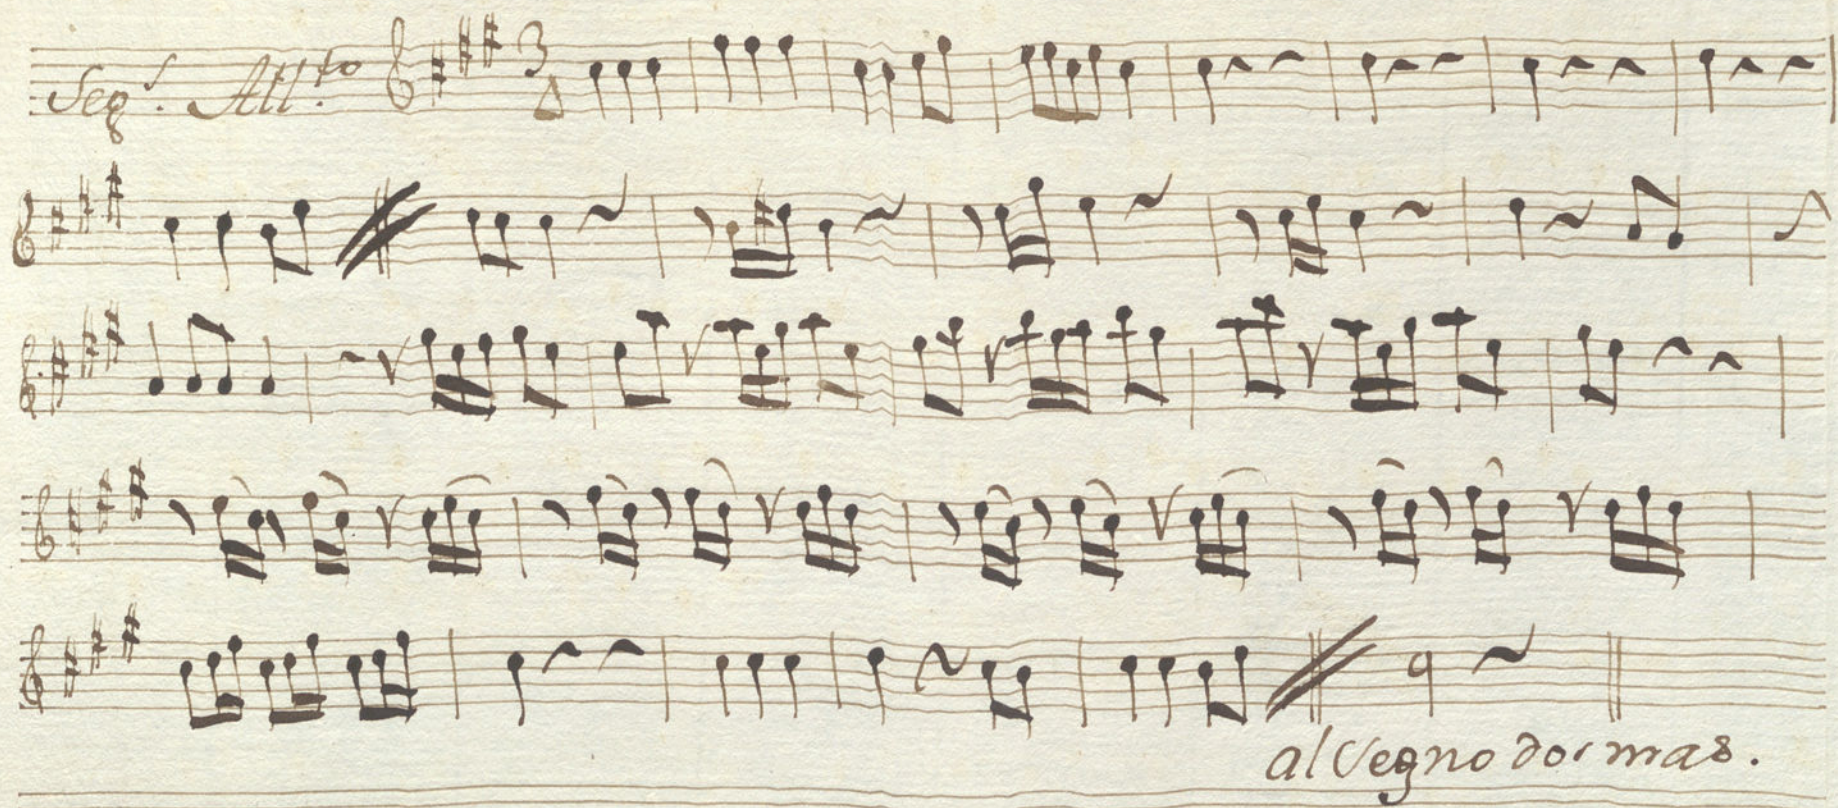 Seg.ˢ All.ᵗᵒ
al Segno dos mas.